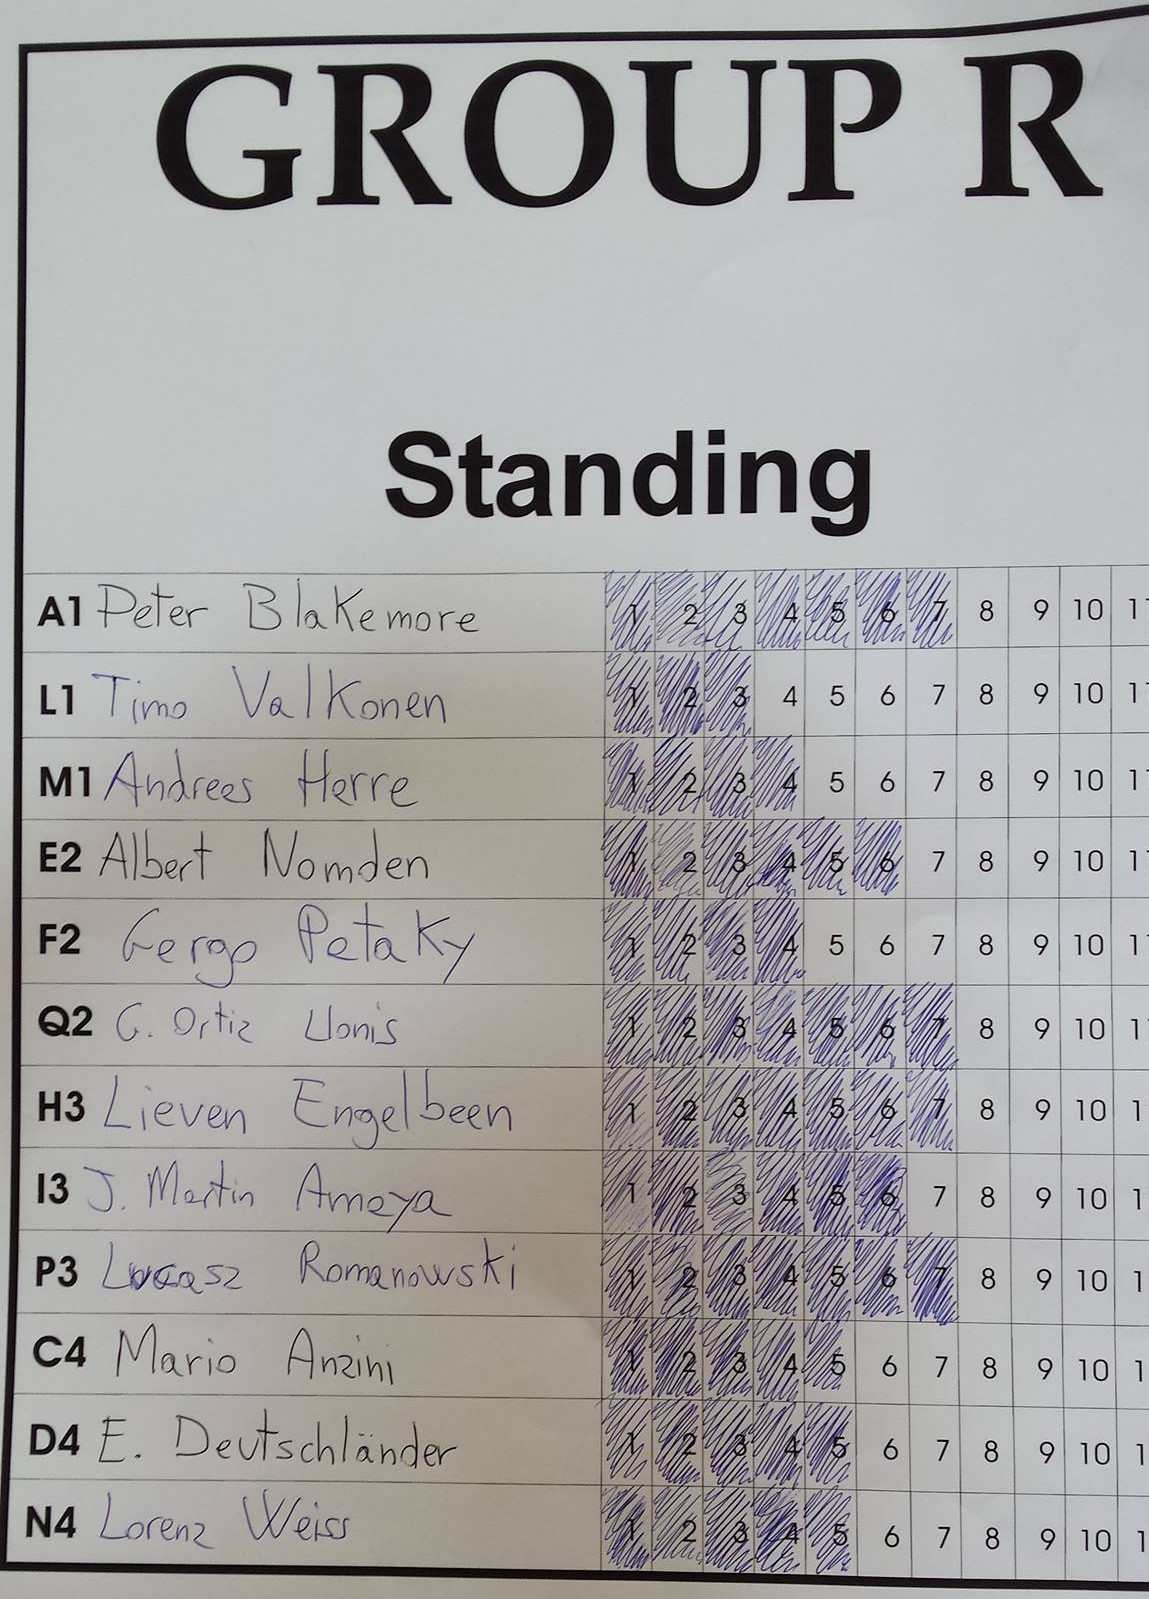 GROUP R
Standing
A1 Peter Blakemore 1 2 3 4 5 6 7 8 9 10 11
L1 Timo Valkonen 1 2 3 4 5 6 7 8 9 10 11
M1 Andrees Herre 1 2 3 4 5 6 7 8 9 10 11
E2 Albert Nomden 1 2 3 4 5 6 7 8 9 10 11
F2 Gergo Petaky 1 2 3 4 5 6 7 8 9 10 11
Q2 G. Ortiz Llonis 1 2 3 4 5 6 7 8 9 10 1
H3 Lieven Engelbeen 1 2 3 4 5 6 7 8 9 10 1
I3 J. Martin Amaya 1 2 3 4 5 6 7 8 9 10 1
P3 Lucasz Romanowski 1 2 3 4 5 6 7 8 9 10 1
C4 Mario Anzini 1 2 3 4 5 6 7 8 9 10 1
D4 E. Deutschländer 1 2 3 4 5 6 7 8 9 10 1
N4 Lorenz Weiss 1 2 3 4 5 6 7 8 9 10 1